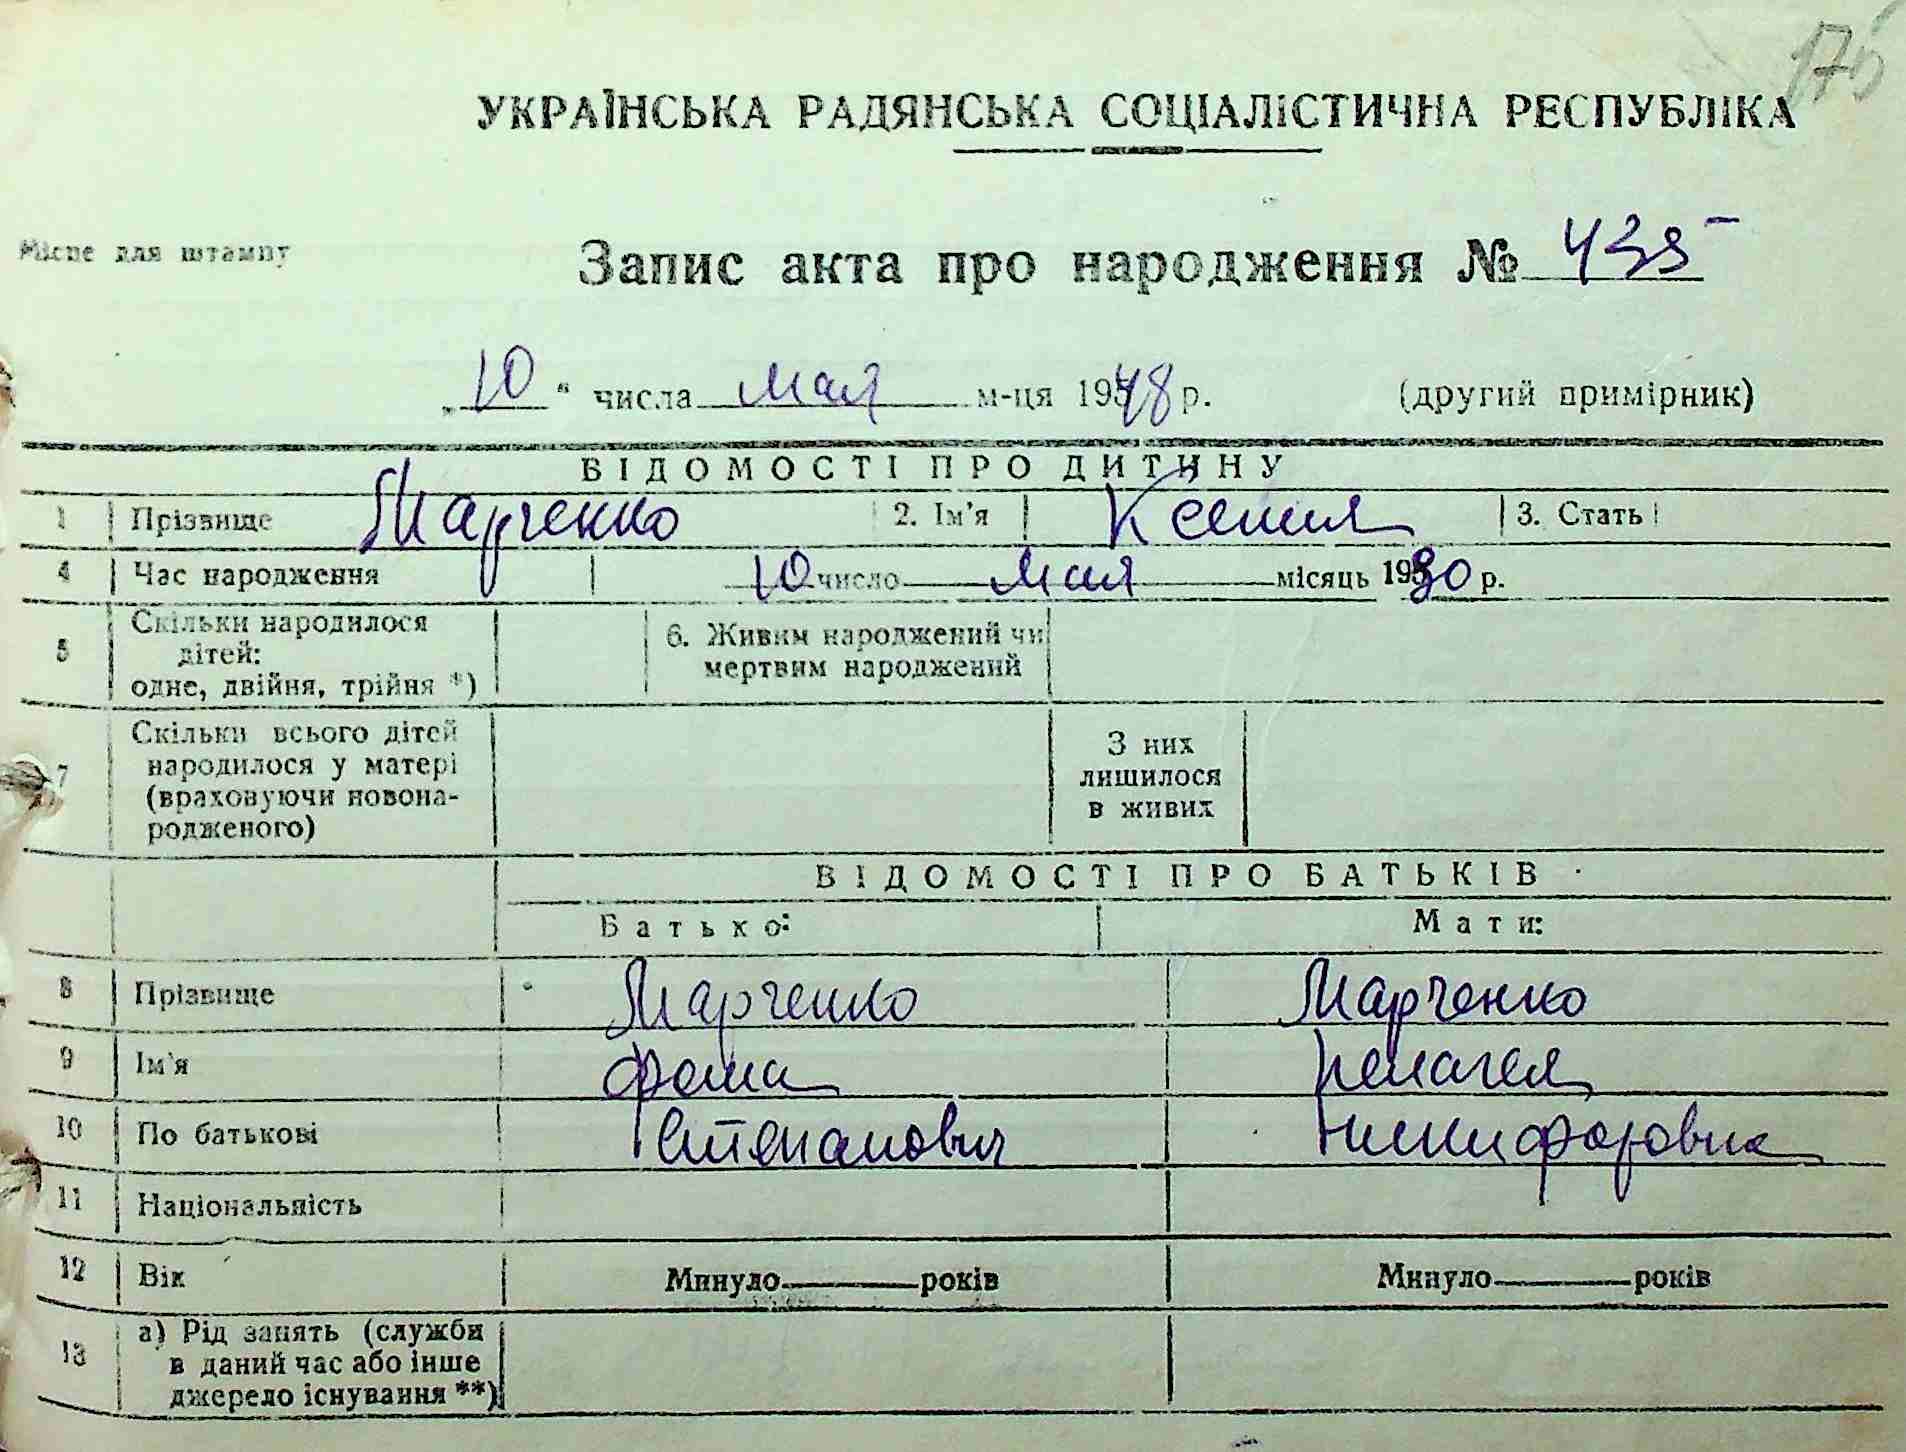 175
УКРАЇНСЬКА РАДЯНСЬКА СОЦІАЛІСТИЧНА РЕСПУБЛІКА
Місце для штампу
Запис акта про народження № 435
„10“ числа мая м-ця 1948 р. (другий примірник)
ВІДОМОСТІ ПРО ДИТИНУ
1 Прізвище Марченко 2. Ім'я Ксения 3. Стать
4 Час народження 10 число мая місяць 1930 р.
5 Скільки народилося дітей: одне, двійня, трійня *) 6. Живим народжений чи мертвим народжений
7 Скільки всього дітей народилося у матері (враховуючи новонародженого) З них лишилося в живих
ВІДОМОСТІ ПРО БАТЬКІВ
Батько: Мати:
8 Прізвище Марченко Марченко
9 Ім'я Фома Пелагея
10 По батькові Степанович Никифоровна
11 Національність
12 Вік Минуло років Минуло років
13 а) Рід занять (служби в даний час або інше джерело існування **)